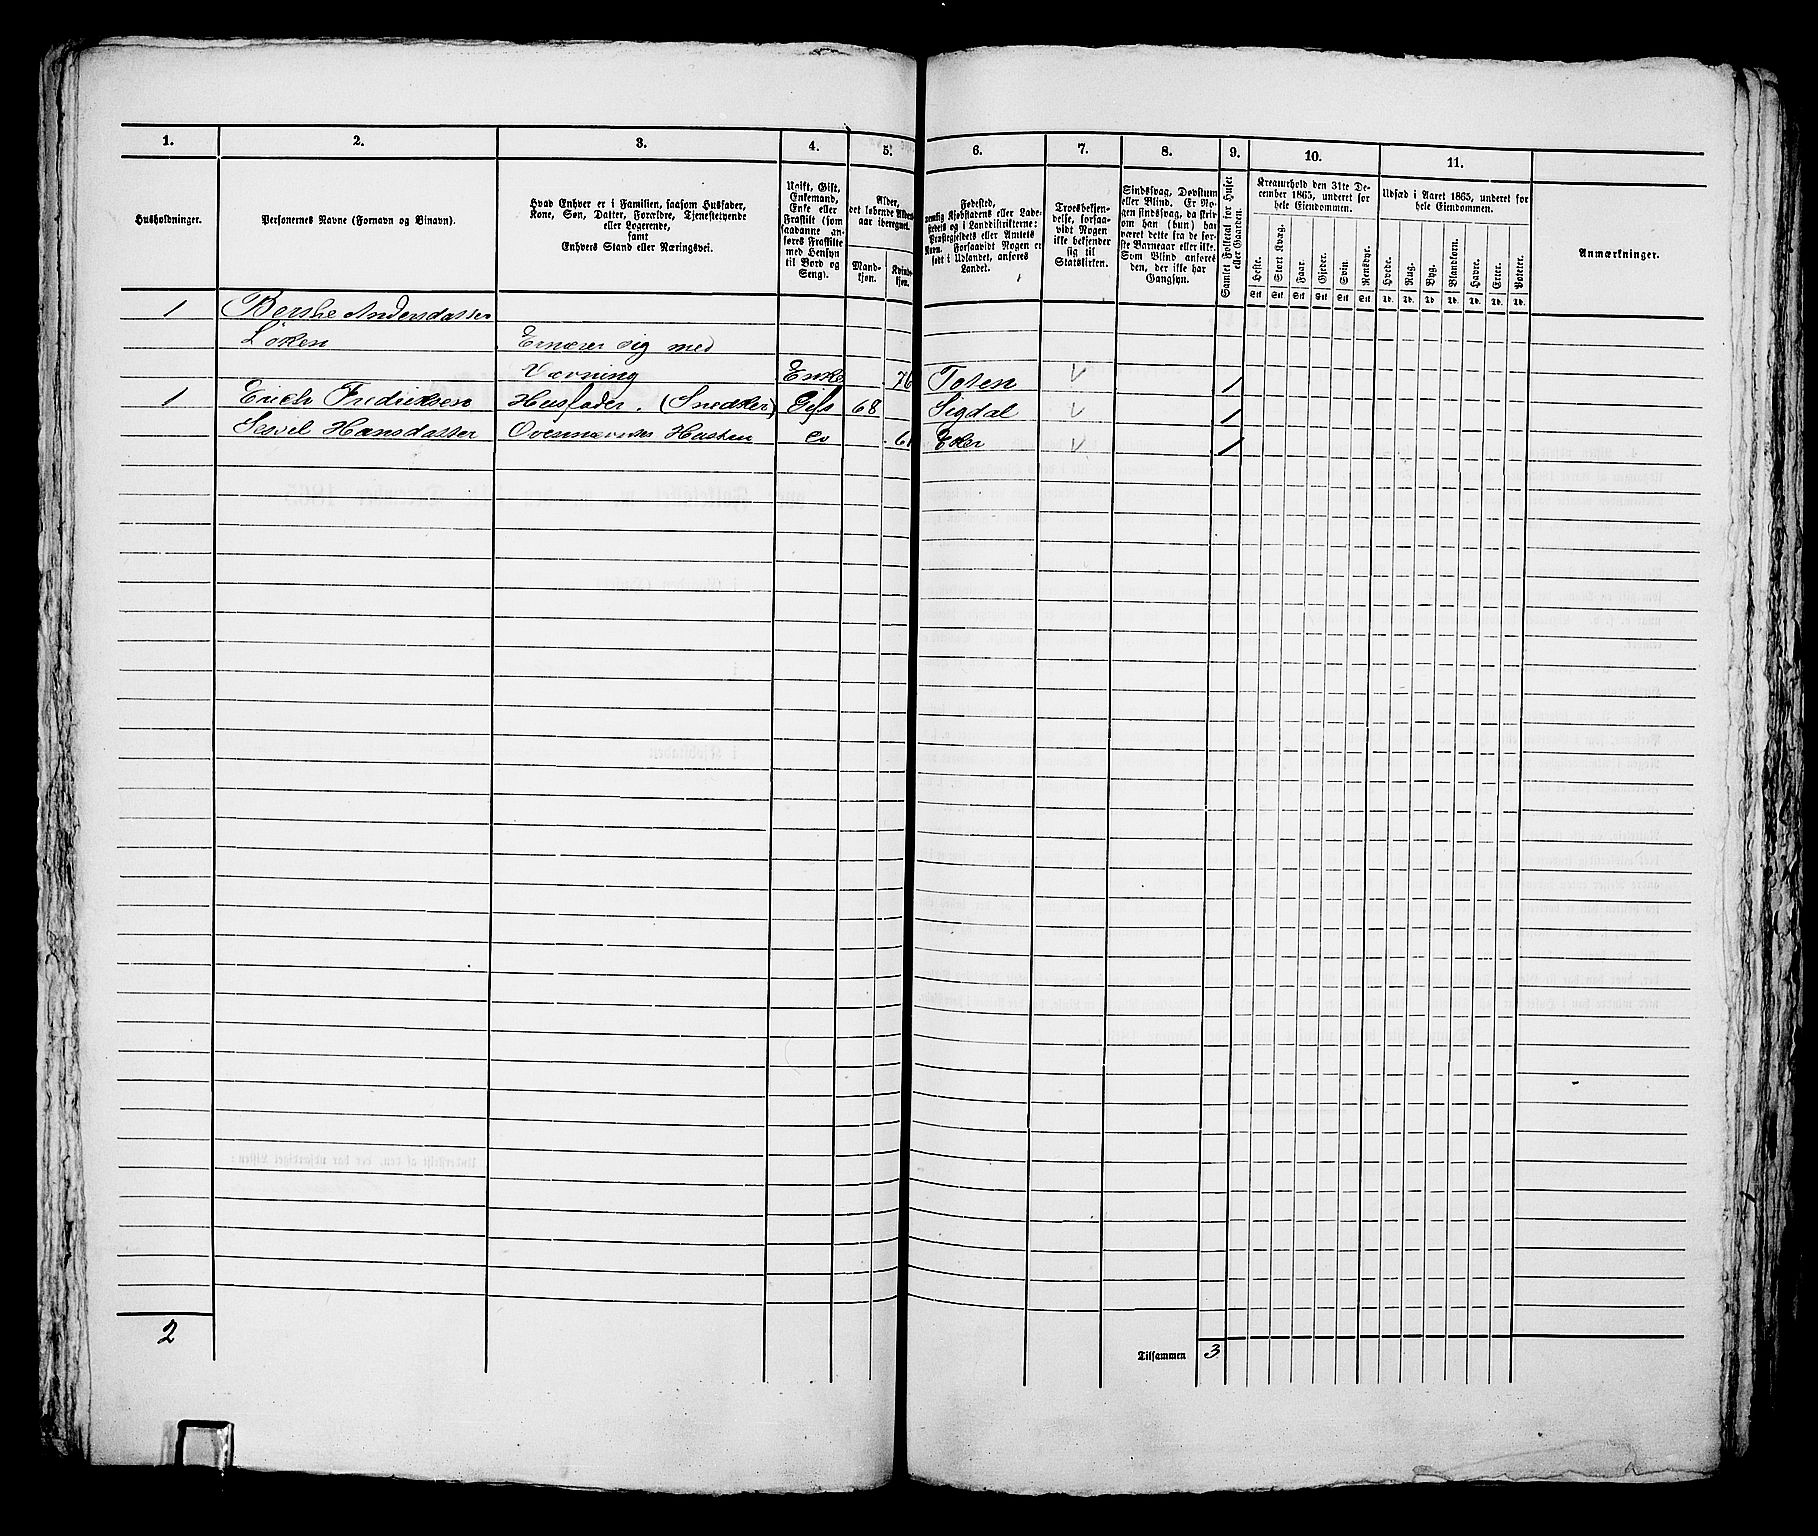 1. 2. 3. 4. 5. 6. 7. 8. 9. 10. 11.
Husholdninger.
Personernes Navne (Fornavn og Binavn).
Hvad Enhver er i Familien, saasom Husfader,
Kone, Søn, Datter, Forældre, Tjenestetyende
eller Logerende,
samt
Enhvers Stand eller Næringsvei.
Ugift, Gift,
Enkemand,
Enke eller
Fraskilt (som
saadanne an-
føres Fraskilte
med Hensyn
til Bord og
Seng).
Alder,
det løbende Alders-
aar iberegnet.
Mand-
kjøn.
Kvinde-
kjøn.
Fødested,
nemlig Kjøbstadens eller Lade-
stedets og i Landdistrikterne:
Præstegjeldets eller Amtets
Navn. Forsaavidt Nogen er
født i Udlandet, anføres
Landet.
Troesbekjen-
delse, forsaa-
vidt Nogen
ikke bekjender
sig til
Statskirken.
Sindssvag, Døvstum
eller Blind. Er No-
gen sindssvag, da skriv
om han (hun) har
været dette fra de før-
ste Barneaar eller ikke.
Som Blind anføres
den, der ikke har
Gangsyn.
Samlet Folketal for Huset
eller Gaarden.
Kreaturhold den 31te De-
cember 1865, underet for
hele Eiendommen.
Heste. Stort Kvæg. Faar. Gjeder. Svin. Rensdyr.
Stk Stk Stk Stk Stk Stk
Udsæd i Aaret 1865, underet for
hele Eiendommen.
Hvede. Rug. Byg. Blandkorn. Havre. Erter. Poteter.
Td. Td. Td. Td. Td. Td. Td.
Anmærkninger.
1 Berthe Andersdatter
Løken Ernærer sig med
Vævning Enke 76 Toten 1
1 Erich Fredriksen Husfader. (Snedker) Gift 68 Sigdal 1
Sessel Hansdatter 61 Eker 1
2
Tilsammen 3